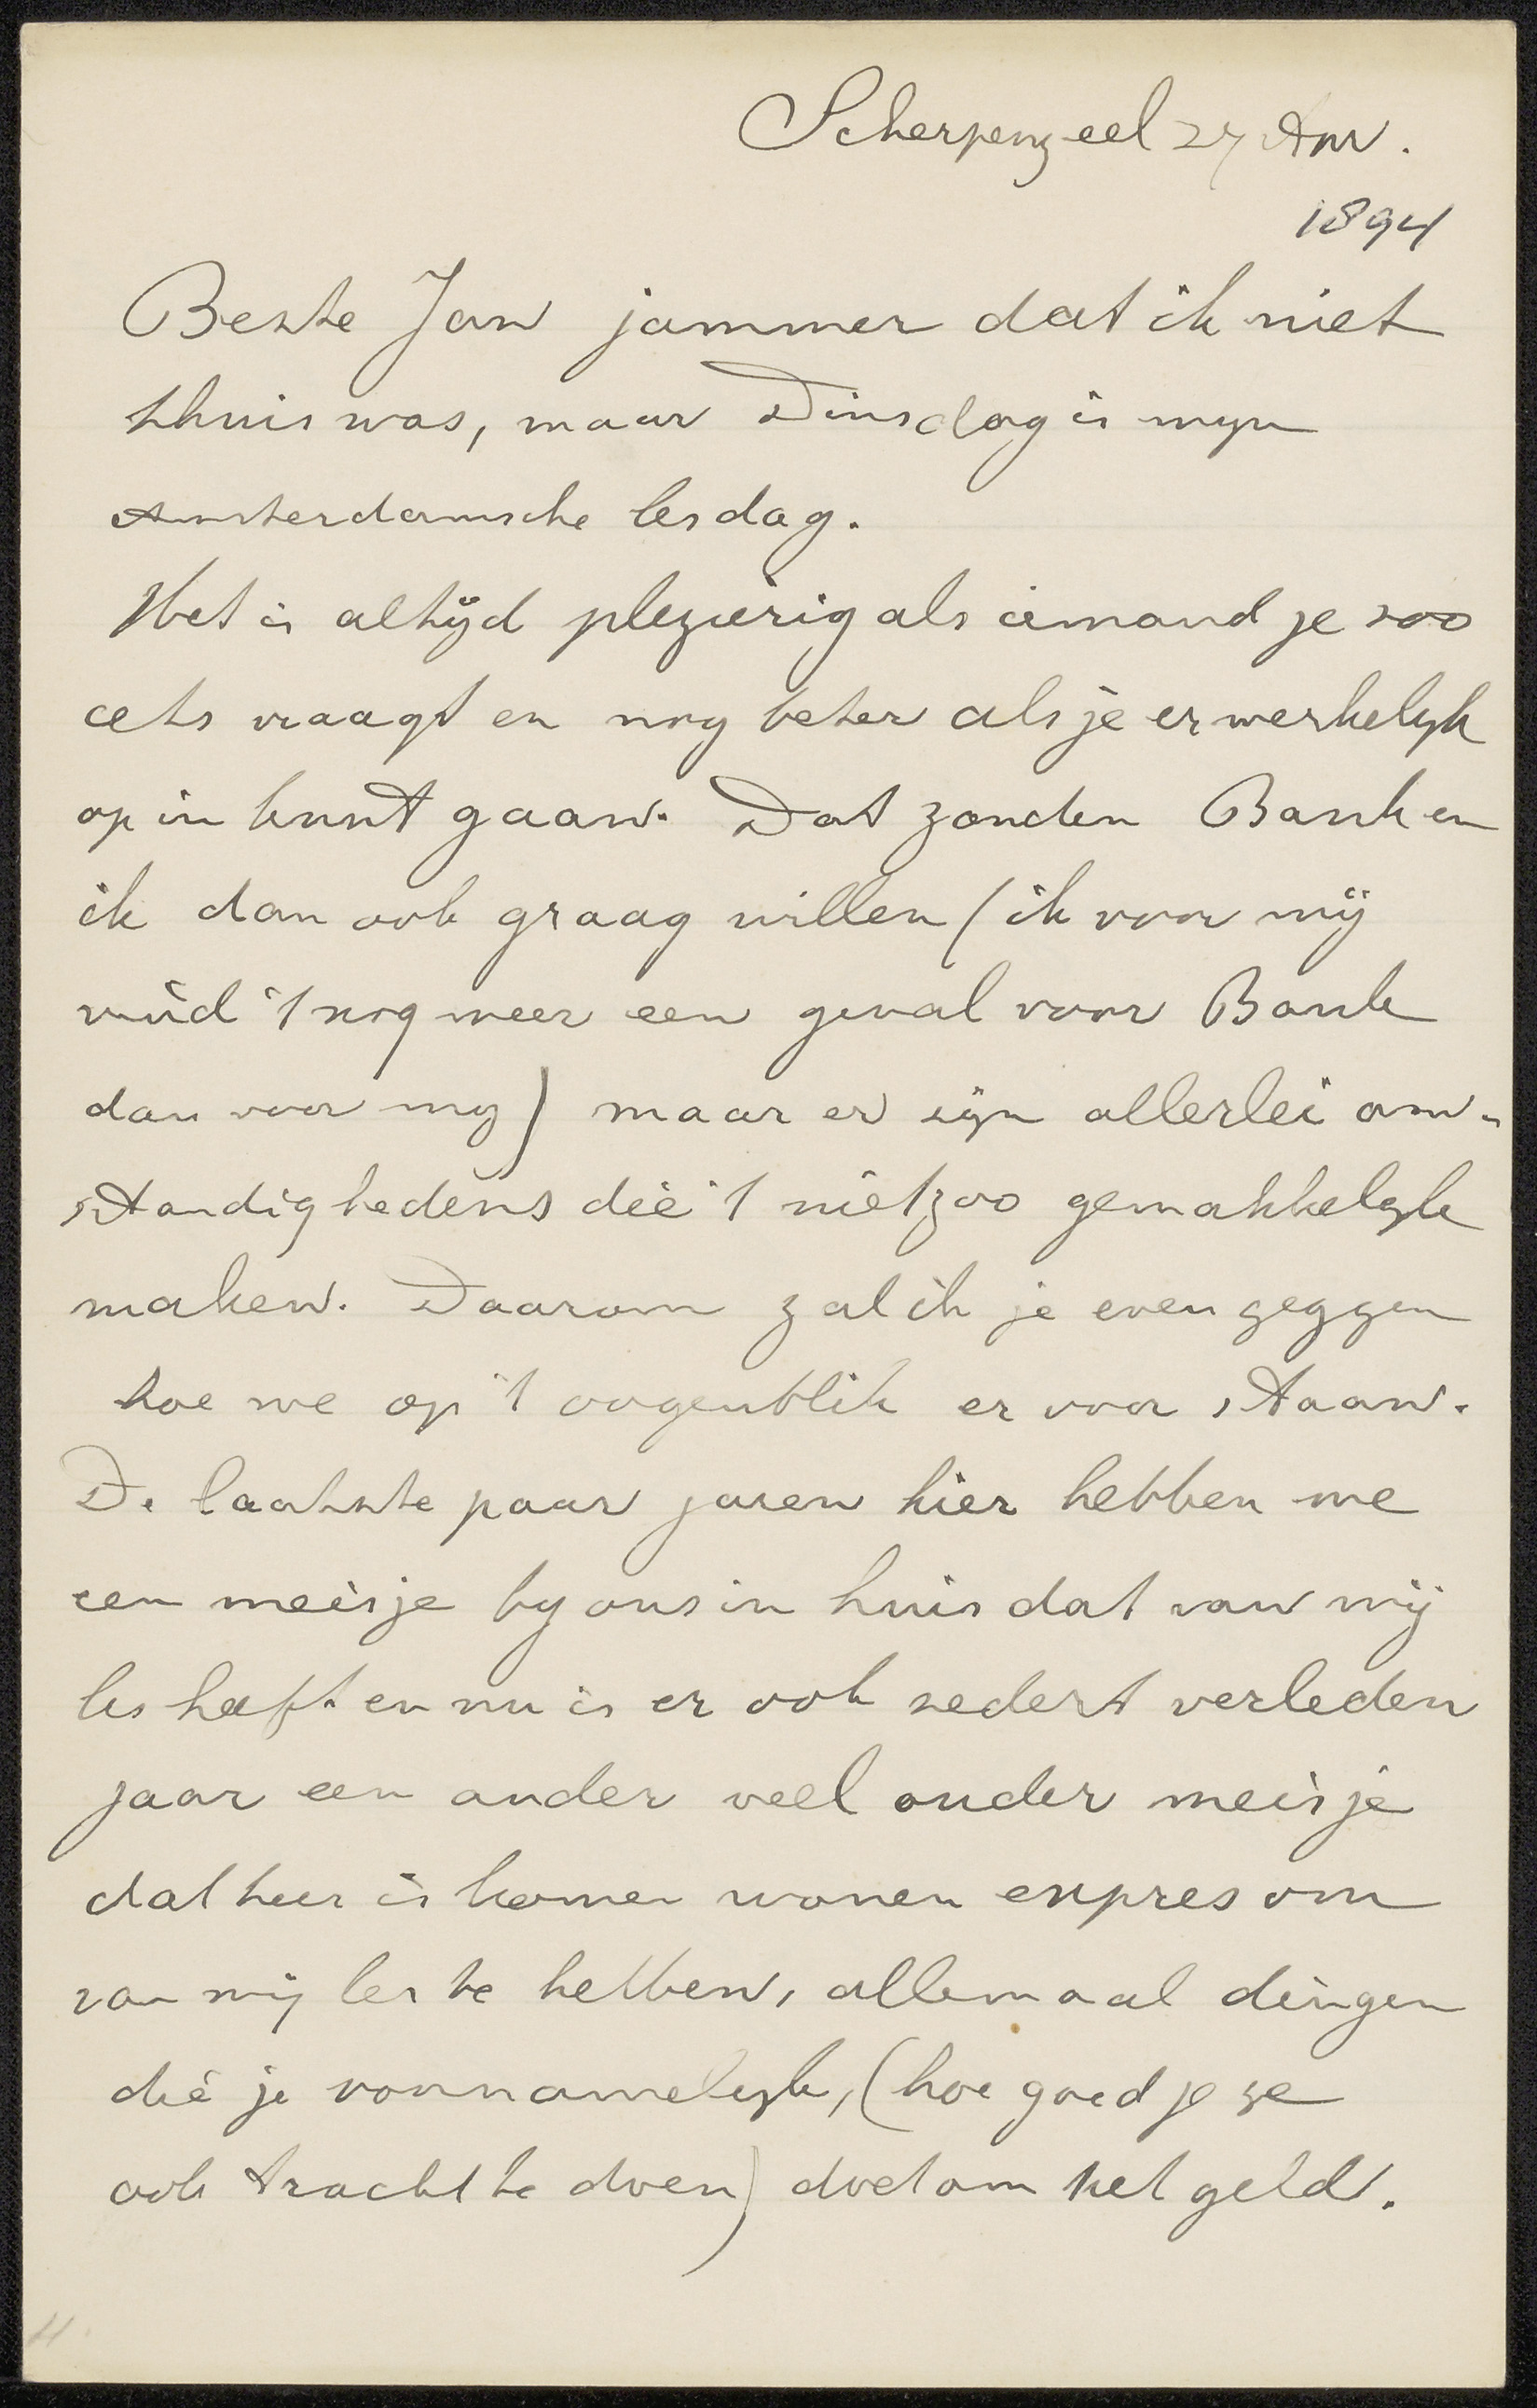 Scherpenzeel 27 Apr.
1894
Beste Jan jammer dat ik niet
thuis was, maar Dinsdag is myn
Amsterdamsche lesdag.
Het is altijd plezierig als iemand je zoo
iets vraagt en nog beter als je er werkelyk
op in kunt gaan. Dat zouden Bauk en
ik dan ook graag willen (ik voor mij
vind 't nog meer een geval voor Bauk
dan voor my) maar er zijn allerlei om-
standighedens die 't niet zoo gemakkelyk
maken. Daarom zal ik je even zeggen
hoe we op 't oogenblik er voor staan.
De laatste paar jaren hier hebben we
een meisje by ons in huis dat van mij
les heeft en nu is er ook sedert verleden
jaar een ander veel ouder meisje
dat hier is komen wonen expres om
van mij les te hebben, allemaal dingen
die je voornamelyk, (hoe goed je ze
ook tracht te doen) doet om het geld.